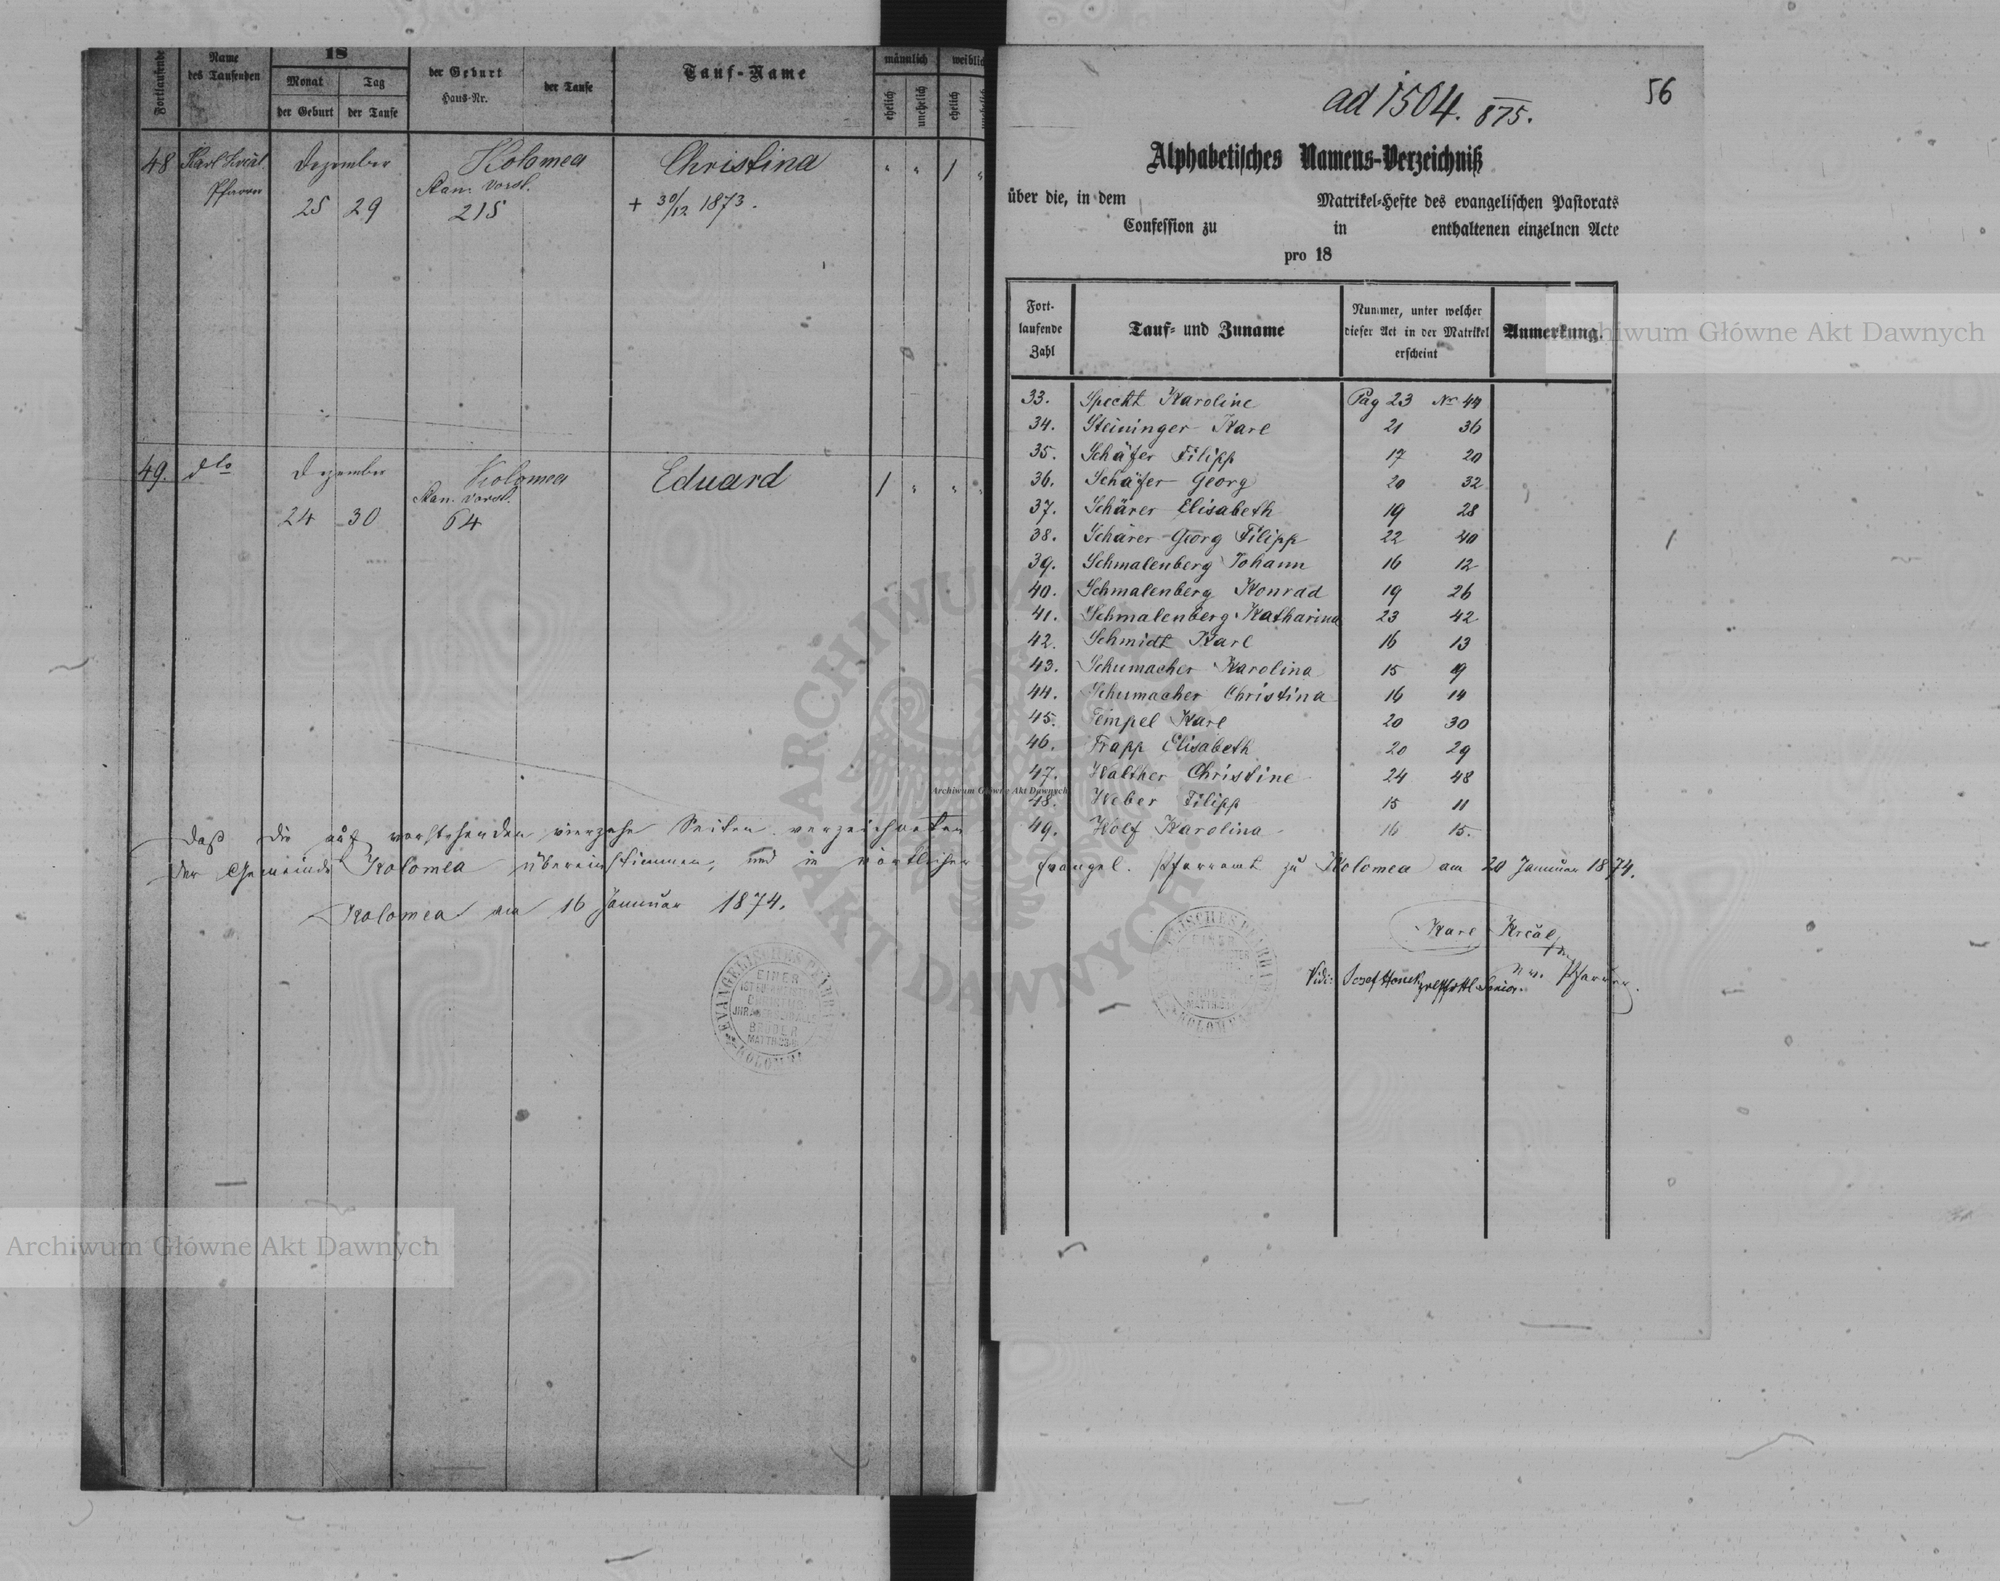 Fortlaufende
Name
des Taufenden
18
Monat
Tag
der Geburt
der Taufe
der Geburt
Haus-Nr.
der Taufe
Tauf-Name
männlich
ehelich
unehelich
weiblich
ehelich
48 Karl Krčal Dezember Kolomea Christina " " 1 "
Pfarrer Stan. Vorst.
25 29 215 + 30/12 1873.
49. dto Dezember Kolomea Eduard 1 " " "
Stan. Vorst.
24 30 64
Daß die auf vorstehenden vierzehn Seiten verzeichneten
der Gemeinde Kolomea übereinstimmen, und in wörtlicher
Kolomea am 16 Januar 1874.
EVANGELISCHES PFARR
EINER
IST EUER MEISTER
CHRISTUS
IHR ABER SEID ALLE
BRÜDER
MATTH. 23. 8
KOLOMEA
56
ad 1504. 875.
Alphabetisches Namens-Verzeichniß
über die, in dem Matrikel-Hefte des evangelischen Pastorats
Confession zu in enthaltenen einzelnen Acte
pro 18
Fort-
laufende
Zahl
Tauf- und Zuname
Nummer, unter welcher
dieser Act in der Matrikel
erscheint
Anmerkung.
33. Specht Karoline Pag 23 Nr 44
34. Steininger Karl 21 36
35. Schäfer Filipp 17 20
36. Schäfer Georg 20 32
37. Schärer Elisabeth 19 28
38. Schärer Georg Filipp 22 40
39. Schmalenberg Johann 16 12
40. Schmalenberg Konrad 19 26
41. Schmalenberg Katharina 23 42
42. Schmidt Karl 16 13
43. Schumacher Karolina 15 9
44. Schumacher Christina 16 14
45. Tempel Karl 20 30
46. Trapp Elisabeth 20 29
47. Walther Christine 24 48
48. Weber Filipp 15 11
49. Wolf Karolina 16 15.
Evangel. Pfarramt zu Kolomea am 20 Januar 1874.
Karl Krčal
Pfarrer.
Vidi: Josef Hönich Senior.
Archiwum Główne Akt Dawnych
Archiwum Główne Akt Dawnych
Archiwum Główne Akt Dawnych
ARCHIWUM
AKT DAWNYCH